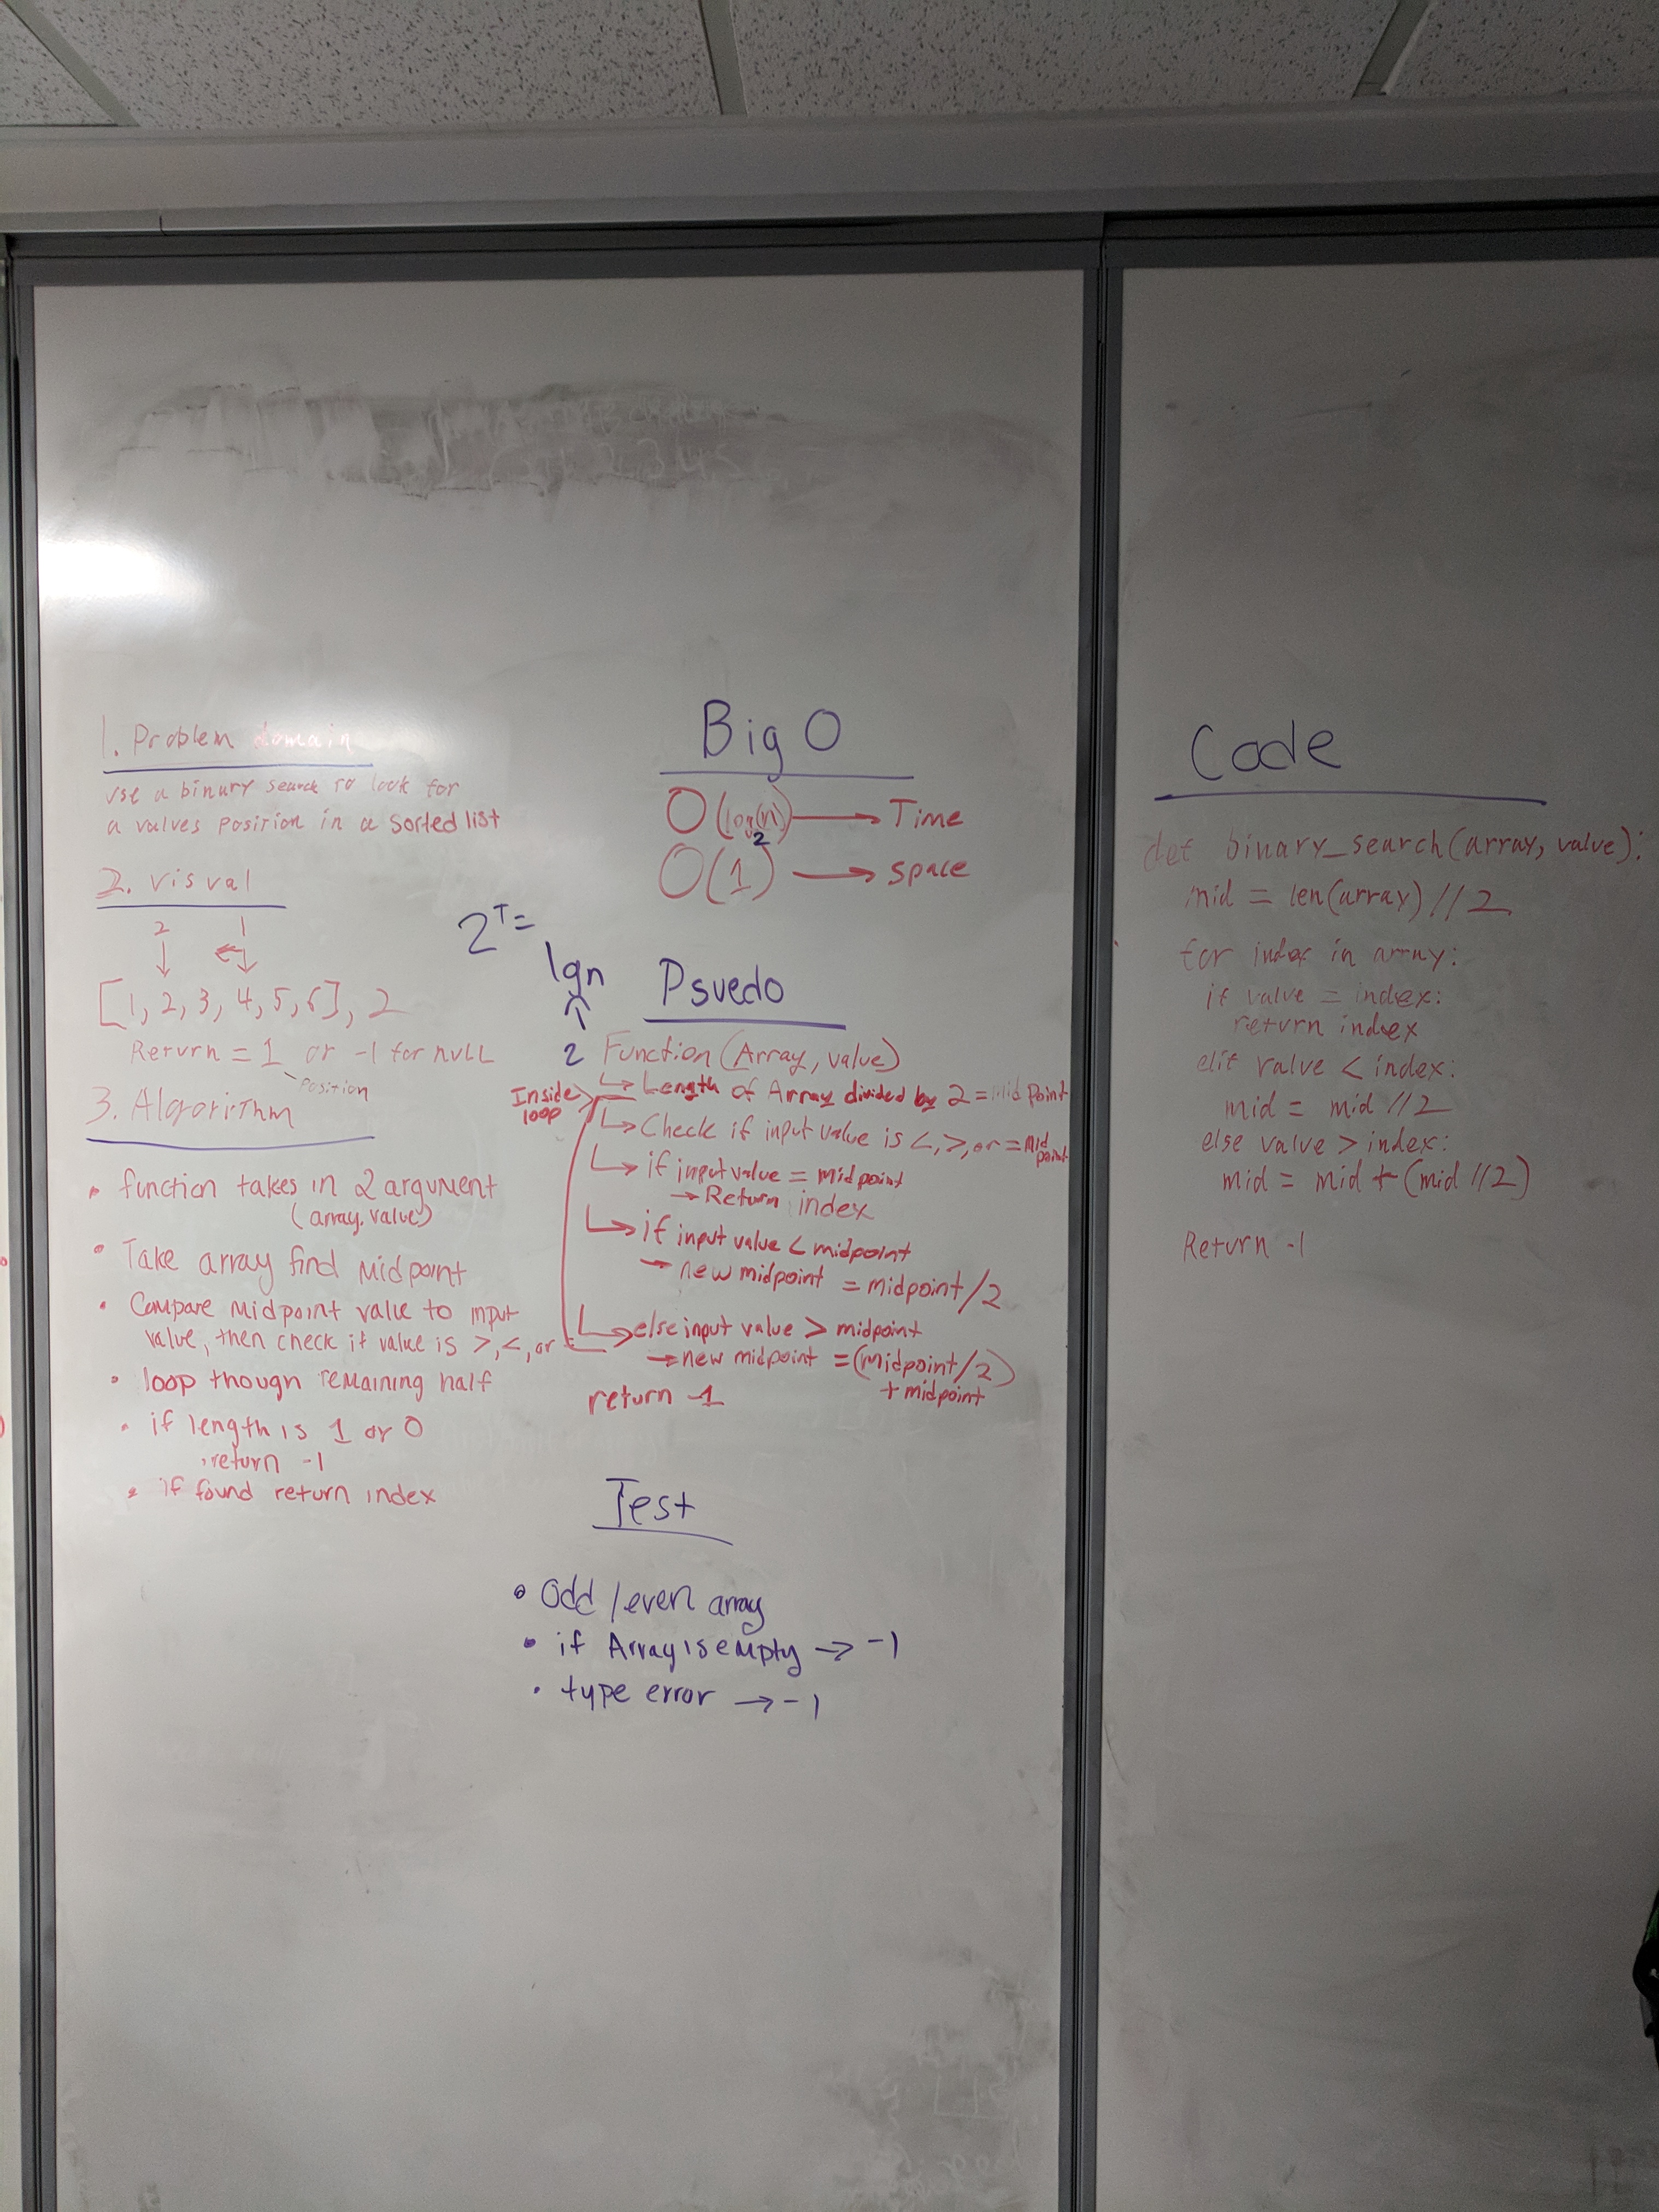 1. Problem domain
use a binary search to look for
a values position in a sorted list
2. visual
2 1
[1, 2, 3, 4, 5, 6], 2
Return = 1 or -1 for null
position
3. Algorithm
• function takes in 2 argument
(array, value)
• Take array find midpoint
• Compare midpoint value to input
value, then check if value is >, <, or =
• loop though remaining half
• if length is 1 or 0
return -1
• if found return index
Big O
O(log₂(n)) → Time
O(1) → space
2^T =
lgn
2
Psuedo
Function (Array, value)
Inside
loop
↳ Length of Array divided by 2 = Mid Point
↳ Check if input value is <, >, or = mid
point
↳ if input value = midpoint
→ Return index
↳ if input value < midpoint
→ new midpoint = midpoint/2
↳ else input value > midpoint
→ new midpoint = (midpoint/2)
+ midpoint
return -1
Test
• Odd / even array
• if Array is empty → -1
• type error → -1
Code
def binary_search(array, value):
mid = len(array) // 2
for index in array:
if value = index:
return index
elif value < index:
mid = mid // 2
else value > index:
mid = mid + (mid // 2)
Return -1